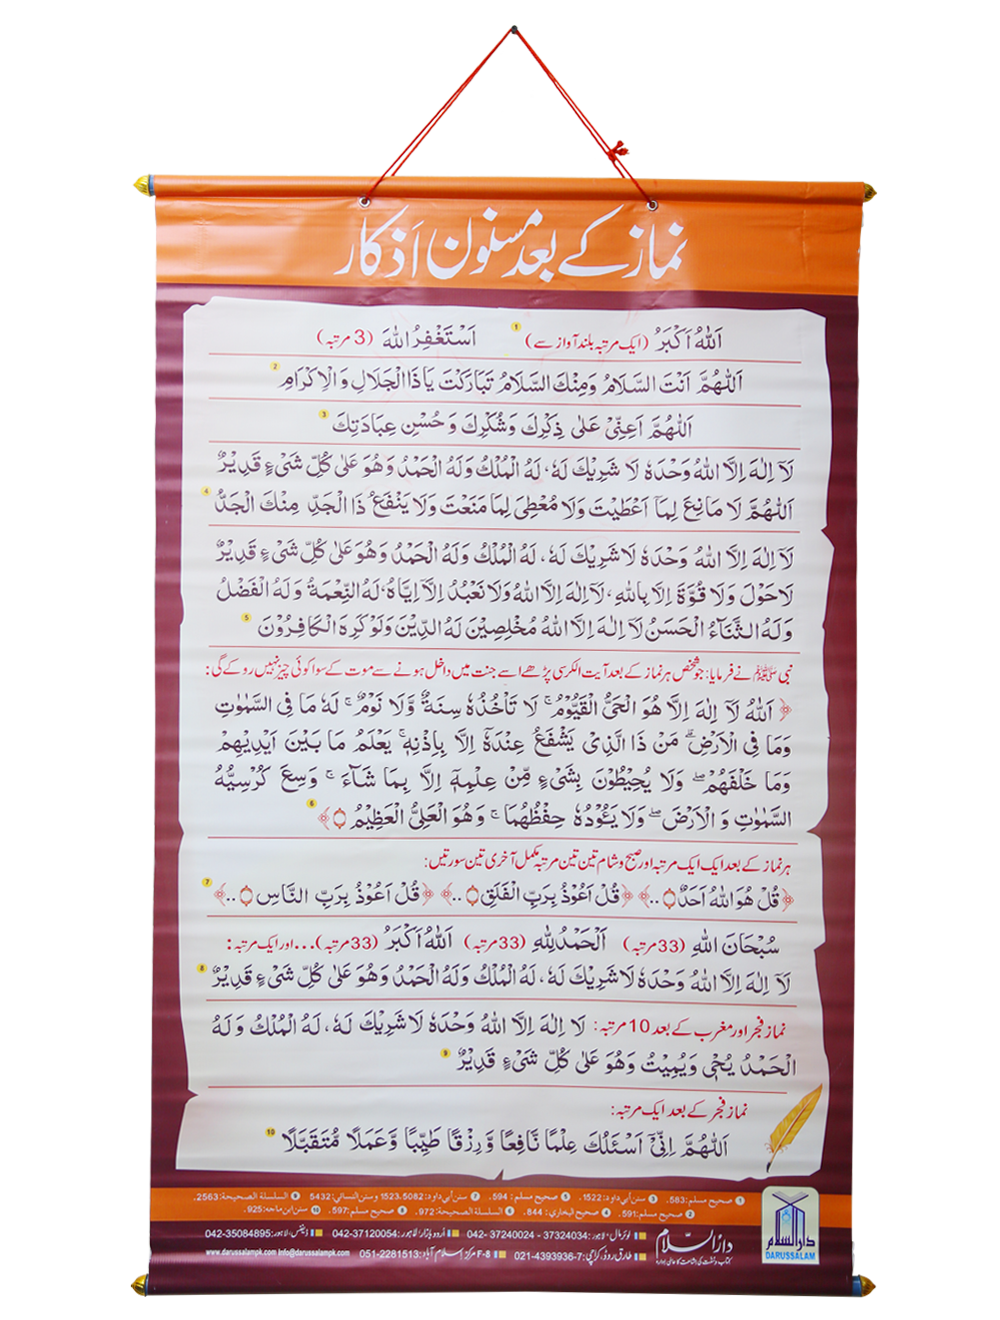 نماز کے بعد مسنون اَذکار
اَللّٰهُ اَكْبَرُ (ایک مرتبہ بلند آواز سے) 1 اَسْتَغْفِرُ اللّٰهَ (3 مرتبہ)
اَللّٰهُمَّ اَنْتَ السَّلَامُ وَمِنْكَ السَّلَامُ تَبَارَكْتَ يَا ذَا الْجَلَالِ وَالْاِكْرَامِ 2
اَللّٰهُمَّ اَعِنِّىْ عَلٰى ذِكْرِكَ وَشُكْرِكَ وَحُسْنِ عِبَادَتِكَ 3
لَآ اِلٰهَ اِلَّا اللّٰهُ وَحْدَهٗ لَا شَرِيْكَ لَهٗ، لَهُ الْمُلْكُ وَلَهُ الْحَمْدُ وَهُوَ عَلٰى كُلِّ شَىْءٍ قَدِيْرٌ
اَللّٰهُمَّ لَا مَانِعَ لِمَآ اَعْطَيْتَ وَلَا مُعْطِىَ لِمَا مَنَعْتَ وَلَا يَنْفَعُ ذَا الْجَدِّ مِنْكَ الْجَدُّ 4
لَآ اِلٰهَ اِلَّا اللّٰهُ وَحْدَهٗ لَا شَرِيْكَ لَهٗ، لَهُ الْمُلْكُ وَلَهُ الْحَمْدُ وَهُوَ عَلٰى كُلِّ شَىْءٍ قَدِيْرٌ
لَا حَوْلَ وَلَا قُوَّةَ اِلَّا بِاللّٰهِ، لَآ اِلٰهَ اِلَّا اللّٰهُ وَلَا نَعْبُدُ اِلَّآ اِيَّاهُ، لَهُ النِّعْمَةُ وَلَهُ الْفَضْلُ
وَلَهُ الثَّنَآءُ الْحَسَنُ لَآ اِلٰهَ اِلَّا اللّٰهُ مُخْلِصِيْنَ لَهُ الدِّيْنَ وَلَوْ كَرِهَ الْكَافِرُوْنَ 5
نبی ﷺ نے فرمایا: جو شخص ہر نماز کے بعد آیت الکرسی پڑھے اسے جنت میں داخل ہونے سے موت کے سوا کوئی چیز نہیں روکے گی:
﴿ اَللّٰهُ لَآ اِلٰهَ اِلَّا هُوَ الْحَىُّ الْقَيُّوْمُ ۚ لَا تَاْخُذُهٗ سِنَةٌ وَّلَا نَوْمٌ ۚ لَهٗ مَا فِى السَّمٰوٰتِ
وَمَا فِى الْاَرْضِ ۗ مَنْ ذَا الَّذِىْ يَشْفَعُ عِنْدَهٗٓ اِلَّا بِاِذْنِهٖ ۚ يَعْلَمُ مَا بَيْنَ اَيْدِيْهِمْ
وَمَا خَلْفَهُمْ ۖ وَلَا يُحِيْطُوْنَ بِشَىْءٍ مِّنْ عِلْمِهٖٓ اِلَّا بِمَا شَآءَ ۚ وَسِعَ كُرْسِيُّهُ
السَّمٰوٰتِ وَالْاَرْضَ ۖ وَلَا يَـُٔوْدُهٗ حِفْظُهُمَا ۚ وَهُوَ الْعَلِىُّ الْعَظِيْمُ ۝ ﴾ 6
ہر نماز کے بعد ایک ایک مرتبہ اور صبح و شام تین تین مرتبہ مکمل آخری تین سورتیں:
﴿ قُلْ هُوَ اللّٰهُ اَحَدٌ ۝ ..﴾ ﴿ قُلْ اَعُوْذُ بِرَبِّ الْفَلَقِ ۝ ..﴾ ﴿ قُلْ اَعُوْذُ بِرَبِّ النَّاسِ ۝ ..﴾ 7
سُبْحَانَ اللّٰهِ (33 مرتبہ) اَلْحَمْدُ لِلّٰهِ (33 مرتبہ) اَللّٰهُ اَكْبَرُ (33 مرتبہ)... اور ایک مرتبہ:
لَآ اِلٰهَ اِلَّا اللّٰهُ وَحْدَهٗ لَا شَرِيْكَ لَهٗ، لَهُ الْمُلْكُ وَلَهُ الْحَمْدُ وَهُوَ عَلٰى كُلِّ شَىْءٍ قَدِيْرٌ 8
نماز فجر اور مغرب کے بعد 10 مرتبہ: لَا اِلٰهَ اِلَّا اللّٰهُ وَحْدَهٗ لَا شَرِيْكَ لَهٗ، لَهُ الْمُلْكُ وَلَهُ
الْحَمْدُ يُحْىٖ وَيُمِيْتُ وَهُوَ عَلٰى كُلِّ شَىْءٍ قَدِيْرٌ 9
نماز فجر کے بعد ایک مرتبہ:
اَللّٰهُمَّ اِنِّىْٓ اَسْئَلُكَ عِلْمًا نَّافِعًا وَّرِزْقًا طَيِّبًا وَّعَمَلًا مُّتَقَبَّلًا 10
1 صحیح مسلم: 583. 3 سنن أبي داود: 1522. 5 صحیح مسلم: 594. 7 سنن أبي داود: 1523,5082 و سنن النسائي: 5432 9 السلسلة الصحيحة: 2563.
2 صحیح مسلم: 591. 4 صحیح البخاري: 844. 6 السلسلة الصحيحة: 972. 8 صحیح مسلم: 597. 10 سنن ابن ماجه: 925.
دارالسلام
کتاب و سنت کی اشاعت کا عالمی ادارہ
لوئر مال، لاہور: 37324034 - 37240024 -042 اُردو بازار، لاہور: 042-37120054 ڈیفنس، لاہور: 042-35084895
طارق روڈ، کراچی: 021-4393936-7 F-8 مرکز اسلام آباد: 051-2281513 www.darussalampk.com info@darussalampk.com
دارالسلام
DARUSSALAM